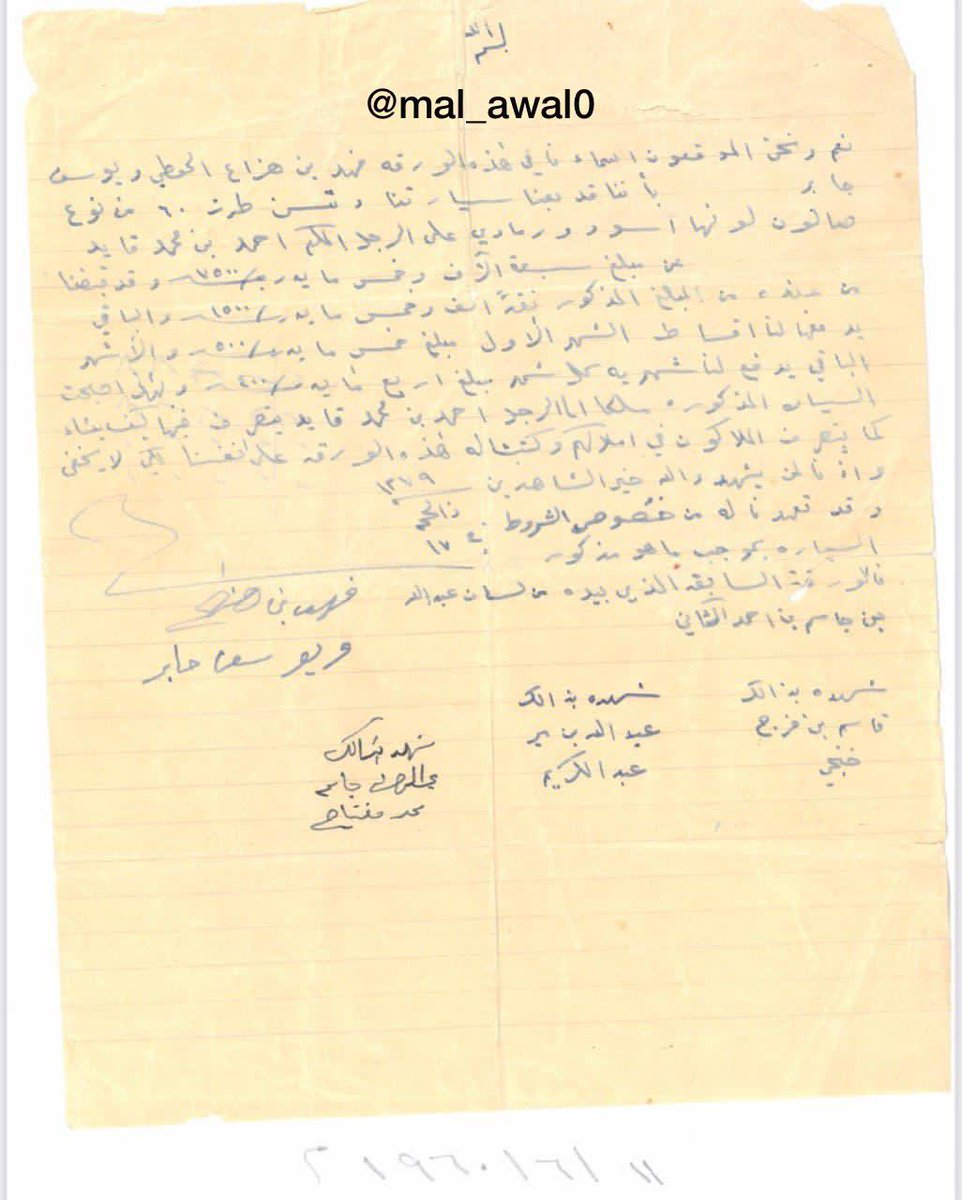 بسم الله
@mal_awal0
نعم ونحن الموقعون اسماءنا في هذه الورقه فهد بن هزاع الحوطي ويوسف
جابر بأننا قد بعنا سيارتنا وتسن طرز ٦٠ من نوع
صالون لونها اسود ورمادي على الرجل المكرم احمد بن محمد قايد
عن مبلغ سبعة آلآف وخمس مايه ربيه ٧٥٠٠ وقد قبضنا
من عنده من المبلغ المذكور نقدًا الف وخمس مايه ١٥٠٠ والباقي
يدفعها لنا اقساط الشهر الاول مبلغ خمس مايه ٥٠٠ والأشهر
الباقي يدفع لنا شهريه كل شهر مبلغ اربع مايه ٤٠٠ ولهذا اصبحت
السياره المذكوره ملكا الرجل احمد بن محمد قايد يتصرف فيها كيف يشاء
كما يتصرف الملاكون في املاكهم وكتبنا له هذه الورقه على انفسنا لكي لا يخفى
واذنا لمن يشهد والله خير الشاهدين ١٣٧٩
وقد تعهدنا له من خصوص الشروط ذالحجه
السياره بموجب ماهو مذكور في ١٧
فالورقة السابقه الذي بيده من لسان عبدالله
بن جاسم بن احمد الثاني
فهد بن هزاع
ويوسف جابر
شهده بذالك
قاسم بن فرج
خنجي
شهده بذالك
عبدالله بن مير
عبدالكريم
شهد بذالك
جاسم
محمد مفتاح
١١ / ٦ / ١٩٦٠ م